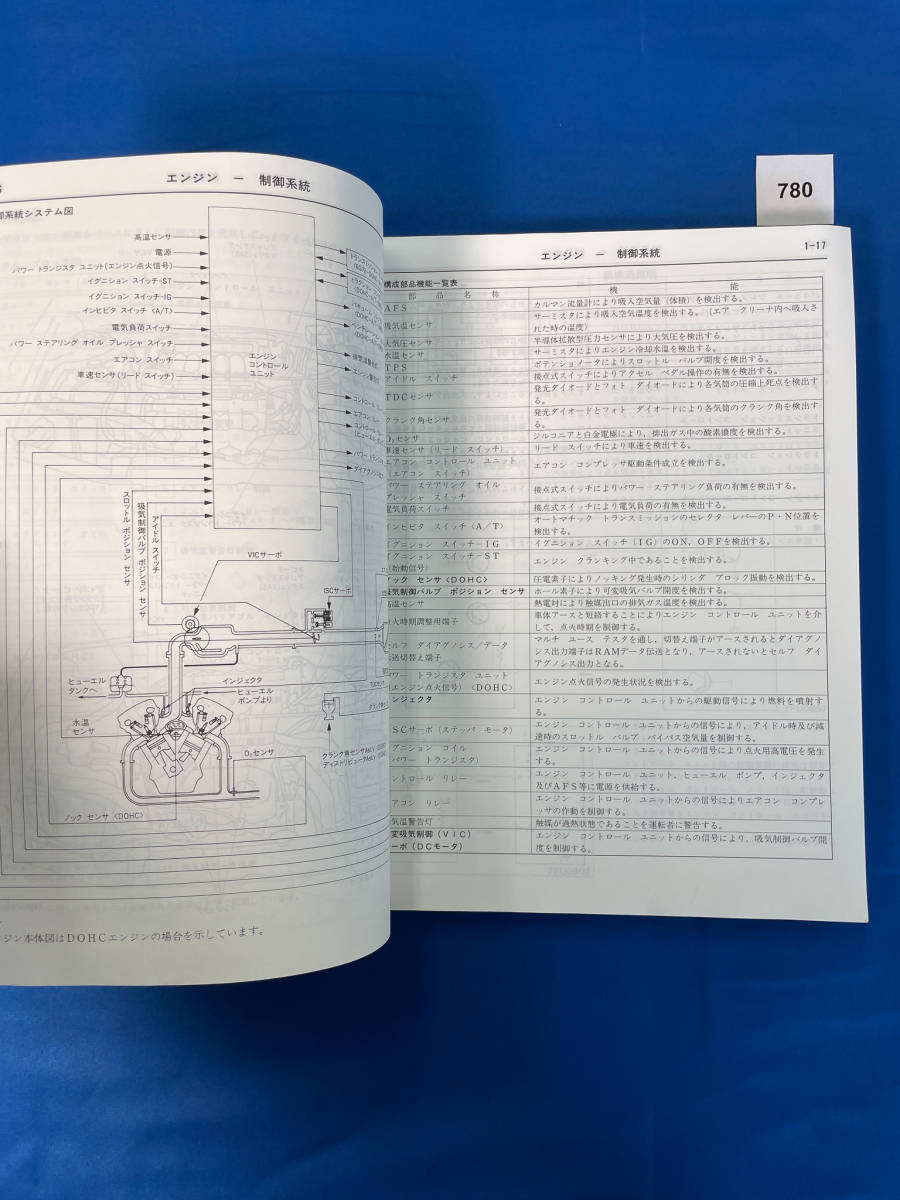 エンジン － 制御系統
御系統システム図
高温センサ
電源
パワー トランジスタ ユニット(エンジン点火信号)
イグニション スイッチ-ST
イグニション スイッチ-IG
インヒビタ スイッチ〈A/T〉
電気負荷スイッチ
パワー ステアリング オイル プレッシャ スイッチ
エアコン スイッチ
車速センサ(リード スイッチ)
エンジン
コントロール
ユニット
スロットル ポジション センサ
吸気制御バルブ ポジション センサ
アイドル スイッチ
VICサーボ
ISCサーボ
ヒューエル
タンクへ
インジェクタ
ヒューエル
ポンプより
水温
センサ
O₂センサ
ノック センサ〈DOHC〉
ジン本体図はDOHCエンジンの場合を示しています。
780
1-17
エンジン － 制御系統
構成部品機能一覧表
部 品 名 称
機 能
AFS
カルマン流量計により吸入空気量（体積）を検出する。
吸気温センサ
サーミスタにより吸入空気温度を検出する。（エア クリーナ内へ吸入さ
れた時の温度）
大気圧センサ
半導体拡散型圧力センサにより大気圧を検出する。
水温センサ
サーミスタによりエンジン冷却水温を検出する。
TPS
ポテンショメータによりスロットル バルブ開度を検出する。
アイドル スイッチ
接点式スイッチによりアクセル ペダル操作の有無を検出する。
TDCセンサ
発光ダイオードとフォト ダイオードにより各気筒の圧縮上死点を検出す
る。
クランク角センサ
発光ダイオードとフォト ダイオードにより各気筒のクランク角を検出す
る。
O₂センサ
ジルコニアと白金電極により，排出ガス中の酸素濃度を検出する。
車速センサ（リード スイッチ）
リード スイッチにより車速を検出する。
エアコン コントロール ユニット
（エアコン スイッチ）
エアコン コンプレッサ駆動条件成立を検出する。
パワー ステアリング オイル
プレッシャ スイッチ
接点式スイッチによりパワー ステアリング負荷の有無を検出する。
電気負荷スイッチ
接点式スイッチにより電気負荷の有無を検出する。
インヒビタ スイッチ〈A/T〉
オートマチック トランスミッションのセレクタ レバーのP・N位置を
検出する。
イグニション スイッチ-IG
イグニション スイッチ（IG）のON，OFFを検出する。
イグニション スイッチ-ST
（始動信号）
エンジン クランキング中であることを検出する。
ノック センサ〈DOHC〉
圧電素子によりノッキング発生時のシリンダ ブロック振動を検出する。
吸気制御バルブ ポジション センサ
ホール素子により可変吸気バルブ開度を検出する。
高温センサ
熱電対により触媒出口の排気ガス温度を検出する。
点火時期調整用端子
車体アースと短絡することによりエンジン コントロール ユニットを介
して，点火時期を制御する。
セルフ ダイアグノシス/データ
伝送切替え端子
マルチ ユース テスタを通し，切替え端子がアースされるとダイアグノ
シス出力端子はRAMデータ伝送となり，アースされないとセルフ ダイ
アグノシス出力となる。
パワー トランジスタ ユニット
（エンジン点火信号）〈DOHC〉
エンジン点火信号の発生状況を検出する。
インジェクタ
エンジン コントロール ユニットからの駆動信号により燃料を噴射す
る。
ISCサーボ（ステッパ モータ）
エンジン コントロール ユニットからの信号により，アイドル時及び減
速時のスロットル バルブ バイパス空気量を制御する。
イグニション コイル
（パワー トランジスタ）
エンジン コントロール ユニットからの信号により点火用高電圧を発生
する。
コントロール リレー
エンジン コントロール ユニット，ヒューエル ポンプ，インジェクタ
及びAFS等に電源を供給する。
エアコン リレー
エンジン コントロール ユニットからの信号によりエアコン コンプレ
ッサの作動を制御する。
気温警告灯
触媒が過熱状態であることを運転者に警告する。
変吸気制御（VIC）
ーボ（DCモータ）
エンジン コントロール ユニットからの信号により，吸気制御バルブ開
度を制御する。